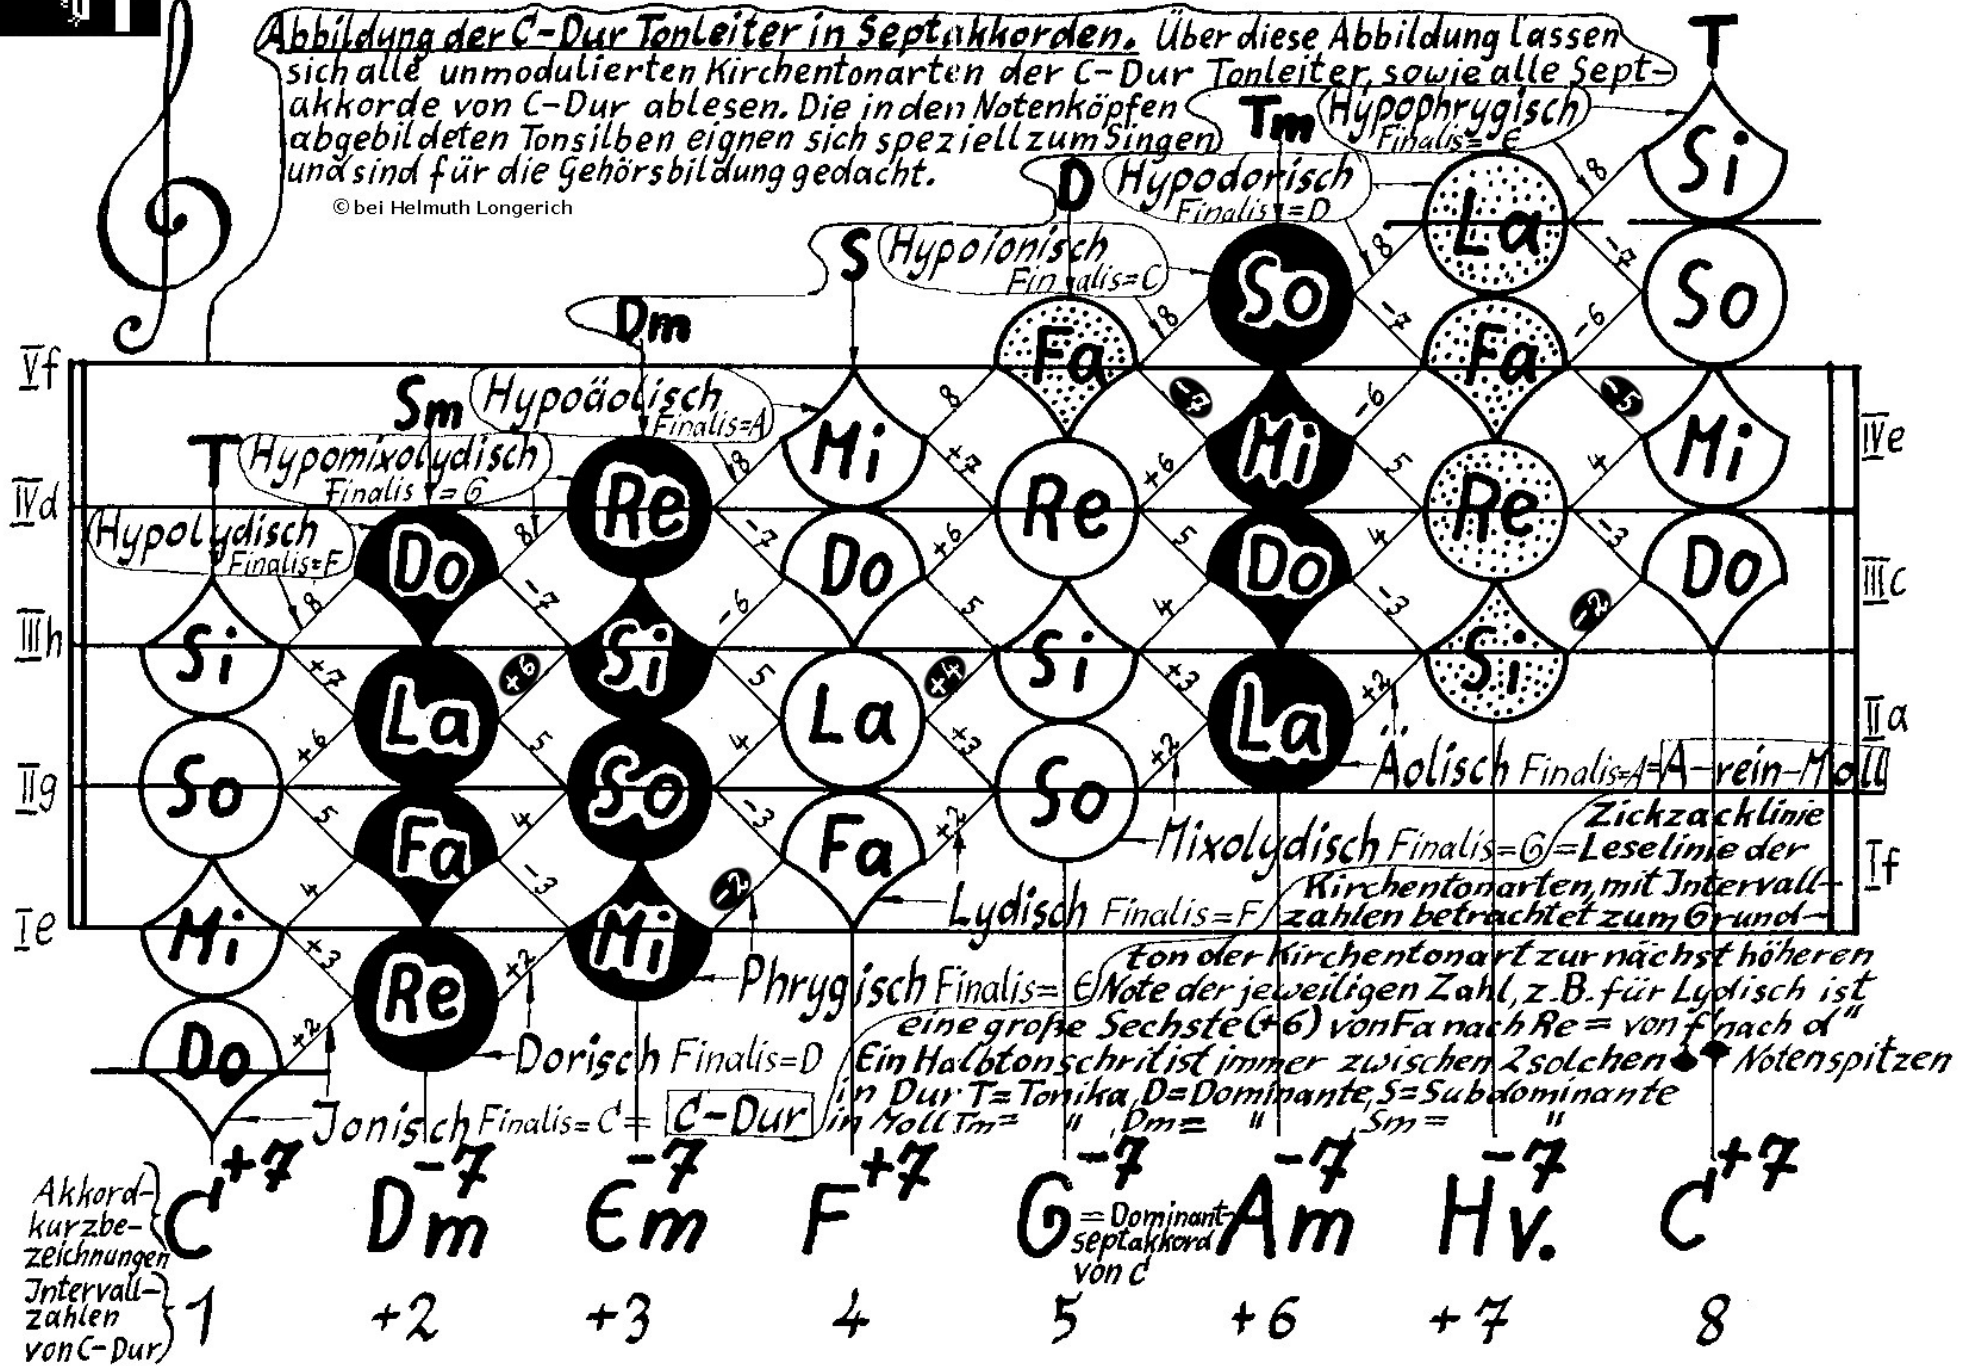 Abbildung der C-Dur Tonleiter in Septakkorden. Über diese Abbildung lassen
sich alle unmodulierten Kirchentonarten der C-Dur Tonleiter, sowie alle Sept-
akkorde von C-Dur ablesen. Die in den Notenköpfen
abgebildeten Tonsilben eignen sich speziell zum Singen
und sind für die Gehörsbildung gedacht.
© bei Helmuth Longerich
T
Tm
Hypophrygisch
Finalis= E
D
Hypodorisch
Finalis=D
S
Hypoionisch
Finalis=C
Dm
Sm
Hypoäolisch
Finalis=A
T
Hypomixolydisch
Finalis=G
Hypolydisch
Finalis=F
Vf
IVd
IIIh
IIg
Ie
IVe
IIIc
IIa
If
Si
So
Mi
Do
Do
La
Fa
Re
Re
Si
So
Mi
Mi
Do
La
Fa
Fa
Re
Si
So
So
Mi
Do
La
La
Fa
Re
Si
Si
So
Mi
Do
8 +7 +6 5 4 +3 +2
8 -7 +6 5 4 -3 +2
8 -7 -6 5 4 -3 -2
8 +7 +6 5 +4 +3 +2
8 -7 +6 5 4 +3 +2
8 -7 -6 5 4 -3 +2
8 -7 -6 -5 4 -3 -2
Äolisch Finalis=A=A-rein-Moll
Mixolydisch Finalis=G
Lydisch Finalis=F
Phrygisch Finalis= E
Dorisch Finalis=D
Jonisch Finalis=C= C-Dur
Zickzacklinie
=Leselinie der
Kirchentonarten, mit Intervall-
zahlen betrachtet zum Grund-
ton der Kirchentonart zur nächst höheren
Note der jeweiligen Zahl, z.B. für Lydisch ist
eine große Sechste (+6) von Fa nach Re = von f' nach d"
Ein Halbtonschritt ist immer zwischen 2 solchen Notenspitzen
in Dur T=Tonika, D=Dominante, S=Subdominante
in Moll Tm= " , Dm= " , Sm= "
Akkord-
kurzbe-
zeichnungen
C+7 Dm-7 Em-7 F+7 G-7 Am-7 Hv.-7 C+7
=Dominant-
septakkord
von C
Intervall-
zahlen
von C-Dur
1 +2 +3 4 5 +6 +7 8